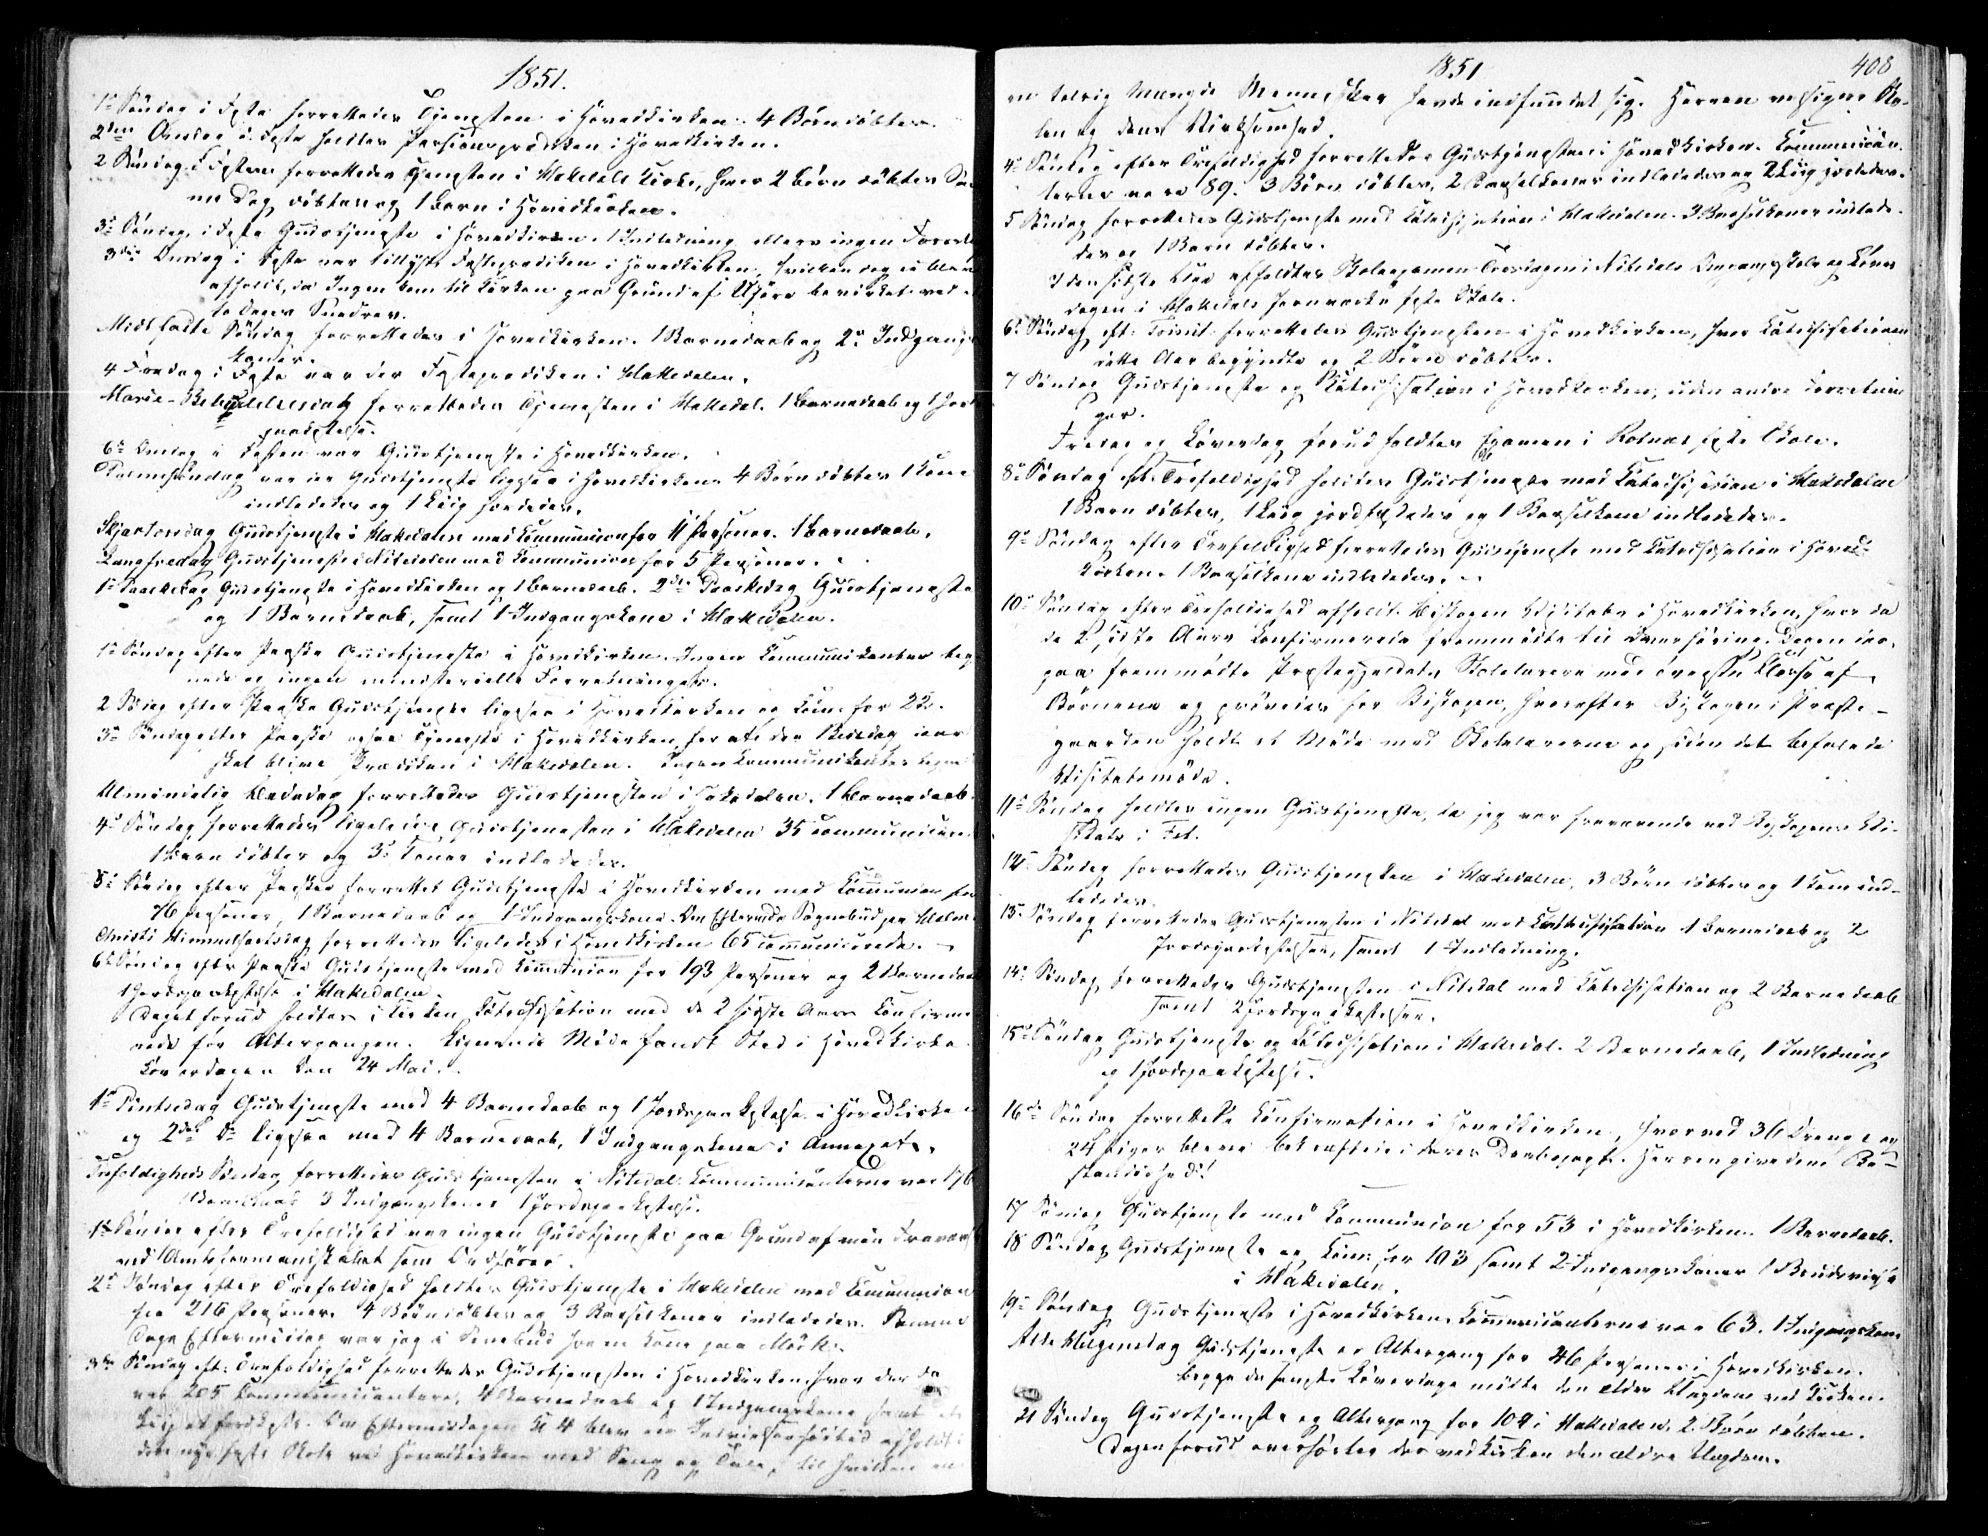 1851.
1ste Søndag i Faste forrettedes Tjenesten i Hovedkirken. 4 Børn døbtes.
2den Onsdag i Faste holdtes Passionsprædiken i Hovedkirken.
2 Søndag i Fasten forrettedes Tjenesten i Hakedals Kirke, hvor 2 Børn døbtes
Dag døbtes og 1 Barn i Hovedkirken.
3die Søndag i Faste Gudstjeneste i Hovedkirken. 1 Indledning ellers ingen
3die Onsdag i Faste var tillyst Fasteprædiken i Hovedkirken, hvilken dog ei blev
afholdt, da Ingen kom til Kirken paa Grund af Uføre bevirket ved
Dages Sneedrev.
Midtfaste Søndag forrettedes i Hovedkirken. 1 Barnedaab og 2 Indgangs
koner.
4 Fredag i Faste var der Fasteprædiken i Hakedalen.
Mariæ-Bebudelsesdag forrettedes Tjenesten i Hakedal. 1 Barnedaab og 1 Jords
paakastelse.
6te Onsdag i Fasten var Gudstjeneste i Hovedkirken.
Palmesøndag var der Gudstjeneste ligesaa i Hovedkirken 4 Børn døbtes 1 Kone
indlededes og 1 Liig jordedes.
Skjærtorsdag Gudstjeneste i Hakedalen med Communion for 11 Personer. 1 Barnedaab.
Langfredag Gudstjeneste i Nitedalen med Communion for 5 Personer.
1ste Paaskedag Gudstjeneste i Hovedkirken og 1 Barnedaab. 2den Paaskedag Gudstjeneste
og 1 Barnedaab, samt 1 Indgangskone i Hakedalen.
1ste Søndag efter Paaske Gudstjeneste i Hovedkirken. Ingen Communikanter teg
nede og ingen ministerielle Forretninger.
2 Søndag efter Paaske Gudstjeneste ligesaa i Hovedkirken og Com. for 22.
3die Søndag efter Paaske ogsaa Tjeneste i Hovedkirken for at der Bededag
skal blive Prædiken i Hakedalen. Ingen Communikanter
Almindelig Bededag forrettedes Gudstjenesten i Hakedalen. 1 Barnedaab.
4de Søndag forrettedes ligeledes Gudstjenesten i Hakedalen 35 Communicanter
1 Barn døbtes og 3 Koner indlededes.
5te Søndag efter Paaske forrettet Gudstjeneste i Hovedkirken med Communion for
76 Personer, 1 Barnedaab og 1 Indgangskone. Om Eftermd. Sognebud paa
Christi Himmelfartsdag forrettedes ligeledes i Hovedkirken 65 communicerede.
6te Søndag efter Paaske Gudstjeneste med Communion for 193 Personer og 2 Barnedaab
1 Jordspaakastelse i Hakedalen.
Dagen forud holdtes i Kirken Katechisation med de 2 sidste Aars Confirme
rede før Altergangen. Lignende Møde fandt Sted i Hovedkirke
Løverdagen den 24 Mai.
1ste Pintsedag Gudstjeneste med 4 Barnedaab og 1 Jordspaakastelse i Hovedkirken
og 2den Do ligesaa med 4 Barnedaab, 1 Indgangskone i Annexet.
Trefoldigheds Søndag forrettedes Gudstjenesten i Nitedal. Communicanterne var 176
Barnedaab 3 Indgangskoner 1 Jordspaakastelse.
1ste Søndag efter Trefoldighed var ingen Gudstjeneste paa Grund af min Fravær
ved Amtsformandskabet som Ordfører.
2den Søndag efter Trefoldighed holdtes Gudstjeneste i Hakedalen med Communion
for 216 Personer. 4 Børn døbtes og 3 Barselkoner indlededes. Samme
Dags Eftermiddag var jeg i Sognebud hos en Kone paa Mork.
3die Søndag eft: Trefoldighed forrettedes Gudstjenesten i Hovedkirken hvor der da
var 205 Communicantere, 4 Barnedaab og 1 Indgangskone samt
Liig at jordfæste. Om Eftermiddagen Kl 4 blev en Indvielseshøitid afholdt i
den nye faste Skole ved Hovedkirken med Sang og Tale, til hvilken en
1851
408
en talrig Mængde Mennesker havde indfundet sig. Herren velsigne Sko-
len og dens Virksomhed.
4de Søndag efter Trefoldighed forrettedes Gudstjenesten i Hovedkirken. Communican
terne var 89. 3 Børn døbtes, 2 Barselkoner indlededes og 2 Liig jordedes.
5 Søndag forrettedes Gudstjeneste med Katechisation i Hakedalen. 3 Barselkoner indlede-
des og 1 Barn døbtes.
I den sidste Uge afholdtes Skoleexamen Tirsdagen i Nitedals Omgangsskole og Løver
dagen i Hakedals Jernværks faste Skole.
6te Søndag eft: Trinit. forrettedes Gudstjenesten i Hovedkirken, hvor Katechisationen
dette Aar begyndte og 2 Børn døbtes.
7 Søndag Gudstjeneste og Katechisation i Hovedkirken, uden andre Forretnin
ger.
Fredag og Løverdag forud holdtes Examen i Rotnæs faste Skole.
8de Søndag eft. Trefoldighed holdtes Gudstjeneste med Katechisation i Hakedalen
1 Barn døbtes, 1 Liig jordfæstedes og 1 Barselkone indlededes.
9de Søndag efter Trefoldighed forrettedes Gudstjeneste med Katechisation i Hoved-
kirken. 1 Barselkone indlededes.
10de Søndag efter Trefoldighed afholdt Biskopen Visitats i Hovedkirken, hvor da
de 2 sidste Aars Confirmerede fremmødte til Overhøring. Dagen der
paa fremmødte Præstegjeldets Skolelærere med øverste Classe af
Børnene og prøvedes for Biskopen, hvorefter Biskopen i Præste-
gaarden holdt et Møde med Skolelærerne og siden det befalede
Visitatsmøde.
11te Søndag holdtes ingen Gudstjeneste, da jeg var fraværende ved Biskopens Vi-
sitats i Fet.
12te Søndag forrettedes Gudstjenesten i Hakedalen, 3 Børn døbtes og 1 Kone ind-
lededes.
13de Søndag forrettedes Gudstjenesten i Nitedal med Katechisation 1 Barnedaab og 2
Jordspaakastelser, samt 1 Indledning.
14de Søndag forrettedes Gudstjenesten i Nitedal med Katechisation og 2 Barnedaab
samt 2 Jordspaakastelser.
15de Søndag Gudstjeneste og Katechisation i Hakedal. 2 Barnedaab, 1 Indledning
og 1 Jordspaakastelse.
16de Søndag forrettedes Confirmation i Hovedkirken, hvorved 36 Drenge og
24 Piger bleve bekræftede i deres Daabspagt. Herren give dem Be-
standighed!
17 Søndag Gudstjeneste med Communion for 53 i Hovedkirken. 1 Barnedaab.
18 Søndag Gudstjeneste og Com. for 103 samt 2 Indgangskoner 1 Brudevielse
i Hakedalen.
19de Søndag Gudstjeneste i Hovedkirken. Communicanterne var 63. 1 Indgangskone
Alle Helgensdag Gudstjeneste og Altergang for 46 Personer i Hovedkirken.
Begge de seneste Løverdage mødte den ældre Ungdom ved Kirken.
21 Søndag Gudstjeneste og Altergang for 104 i Hakedalen. 2 Børn døbtes.
Dagen forud overhørtes der ved Kirken den ældre Ungdom.